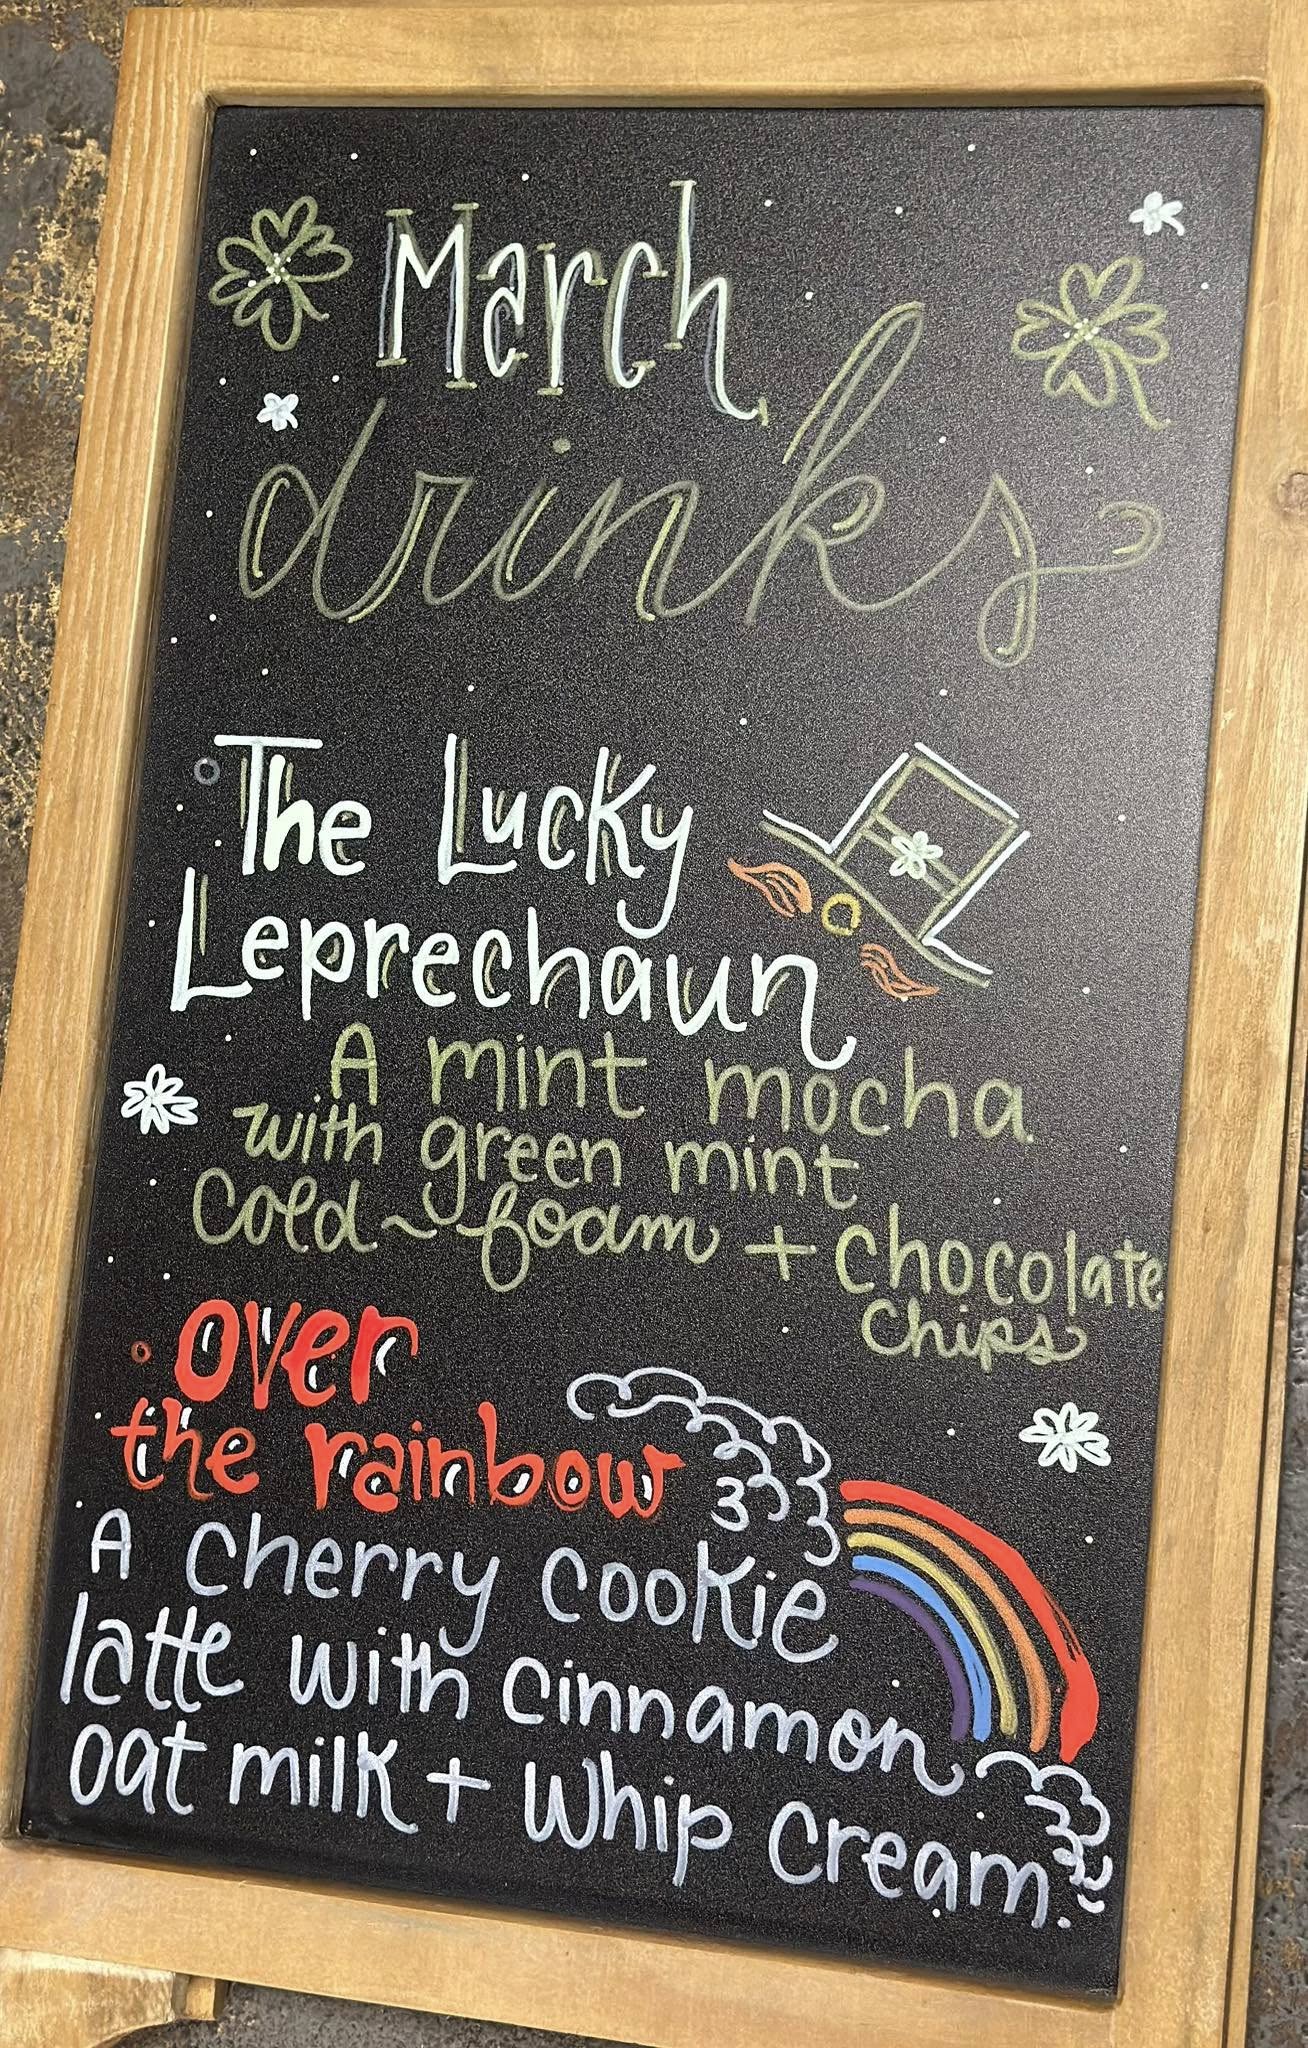 March
drinks
The Lucky
Leprechaun
A mint mocha
with green mint
cold-foam + chocolate
chips
over
the rainbow
A cherry cookie
latte with cinnamon
oat milk + whip cream.